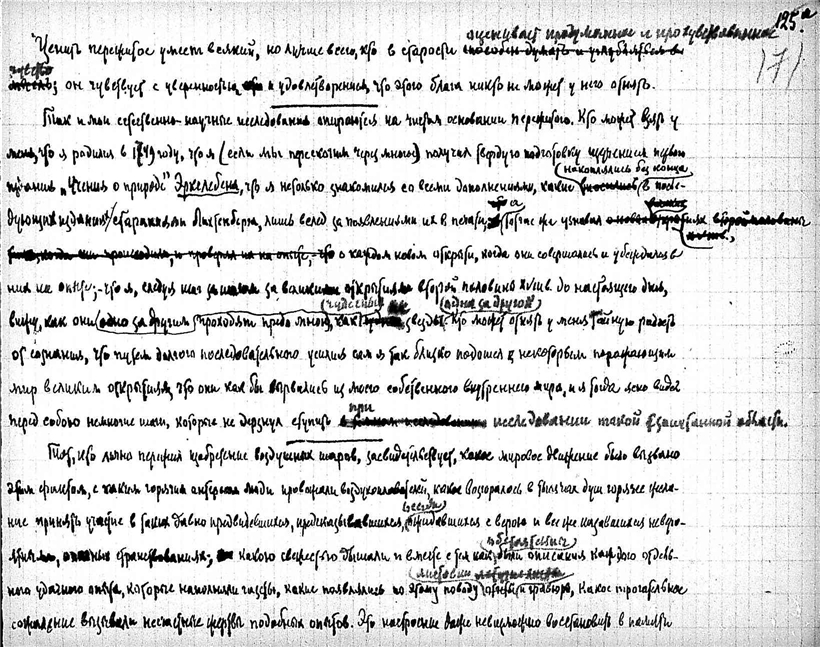 125а
оценивает продуманное и прочувствованное
171
"Ценить пережитое умеет всякий, но лучше всего, кто в старости способен думать и углубляться в
чувство
он чувствует с уверенностью и удовлетворением, что этого блага никто не может у него отнять.
Так и мои естественно-научные исследования опираются на чистом основании пережитого. Кто может взять у
меня, что я родился в 1749 году, что я (если мы перескочим через многое) получил твердую подготовку первого
накоплялись без конца
"Учения о природе" Эркслебена, что я несколько знакомился со всеми дополнениями, какие вносились в после-
дующих изданиях стараниями Лихтенберга, лишь вслед за появлением их в печати, тотчас же узнавал
о каждом новом открытии, когда они совершались и убеждался в
них на опыте; что я, следуя шаг за шагом за великими открытиями второй половины XVIII в. до настоящего дня,
чудесные одна за другой
вижу, как они одно за другим проходят предо мною, как звезды. Кто может отнять у меня тайную радость
от сознания, что путем долгого последовательного усилия сам я так близко подошел к некоторым поражающим
мир великим открытиям, что они как бы вырвались из моего собственного внутреннего мира, и я тогда ясно видел
перед собою немногие шаги, которые не дерзнул ступить при исследовании такой запутанной области.
Тот, кто лично пережил изобретение воздушных шаров, засвидетельствует, какое мировое движение было вызвано
этим фактом, с каким горячим интересом люди провожали воздухоплавателей, какое возгоралось в тысячах душ горячее жела-
ние принять участие в таких давно предвидевшихся, предсказывавшихся, ожидавшихся с верою и все же казавшихся неверо-
ятными, опасных странствованиях; какою свежестью дышали и вместе с тем как были описания каждого отдель-
ного удачного опыта, которые наполняли газеты, какие появлялись по этому поводу гравюры, какое трогательное
сожаление вызывали несчастные жертвы подобных опытов. Это настроение даже невозможно восстановить в памяти